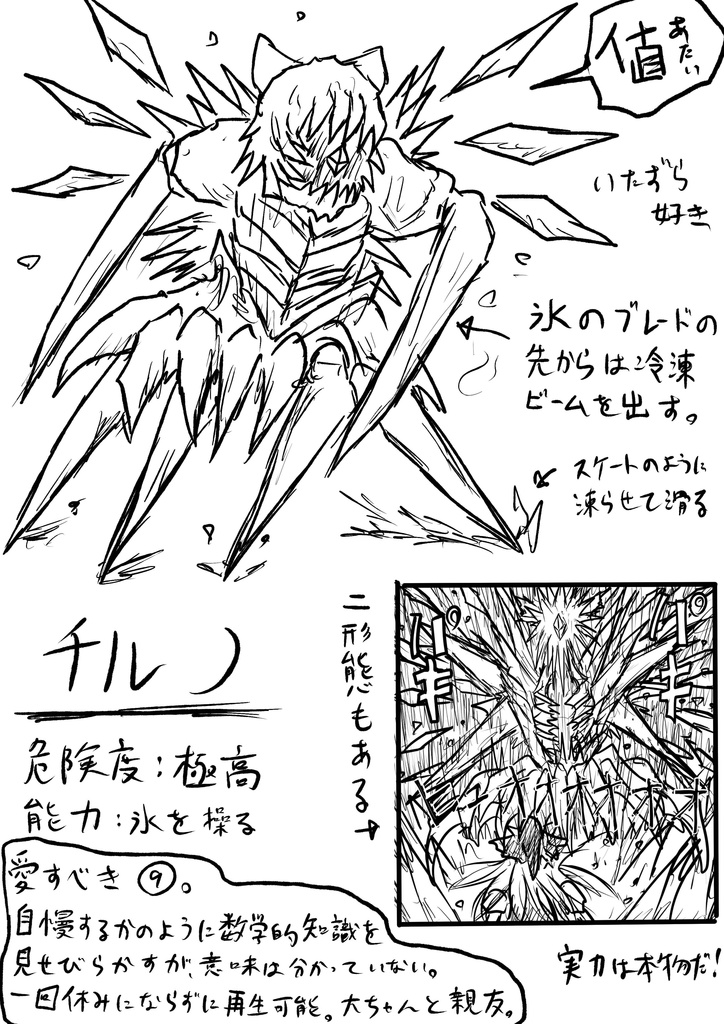 値
あたい
いたずら
好き
氷のブレードの
先からは冷凍
ビームを出す。
スケートのように
凍らせて滑る
チルノ
危険度:極高
能力:氷を操る
二形態もある→
パキ
パキ
愛すべき⑨。
自慢するかのように数学的知識を
見せびらかすが、意味は分かっていない。
一回休みにならずに再生可能。大ちゃんと親友。
実力は本物だ!